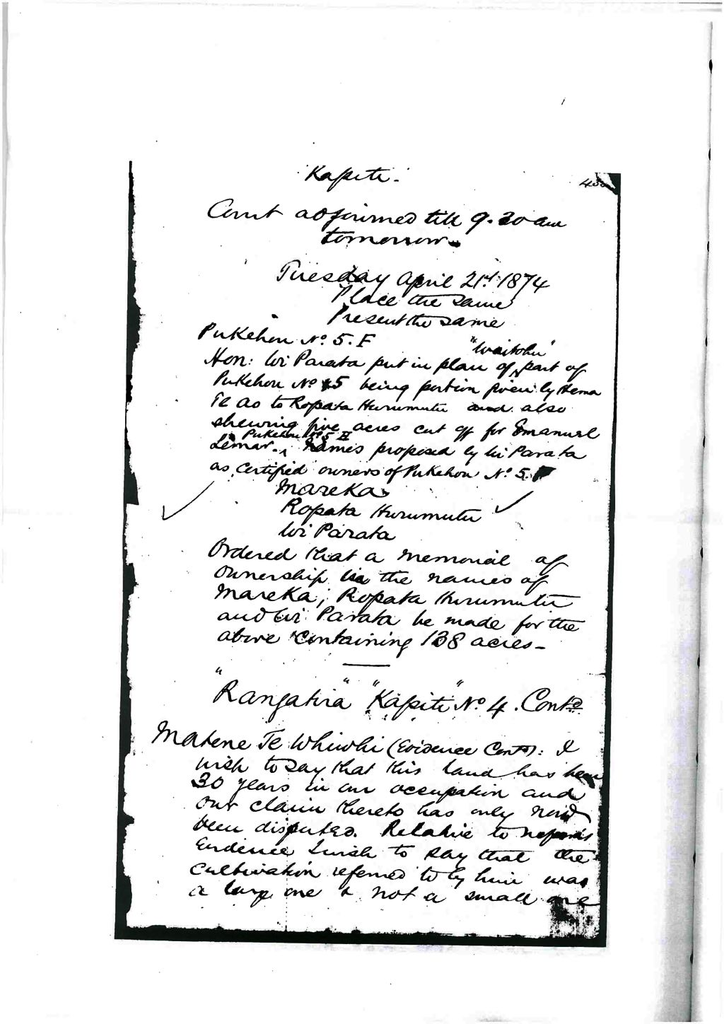 Kapiti.
Court adjourned till 9.30 am
tomorrow.
Tuesday April 21st 1874
Place the same
Present the same
Pukehou No 5.F
"Waitohu"
Hon: Wi Parata put in plan of part of
Pukehou No 5 being portion given by Hema
Te Ao to Ropata Hurumutu and also
shewing five acres cut off for Emanuel
Pukehou No 5
Lemar. Names proposed by Wi Parata
as certified owners of Pukehou No 5.F
Mareka
Ropata Hurumutu
Wi Parata
Ordered that a memorial of
Ownership in the names of
Mareka, Ropata Hurumutu
and Wi Parata be made for the
above containing 138 acres -
"Rangatira" "Kapiti" No 4. Contd
Matene Te Whiwhi (Evidence Contd): I
wish to say that this land has been
30 years in our occupation and
our claim thereto has only now
been disputed. Relative to
Evidence I wish to say that the
cultivation referred to by him was
a large one & not a small one